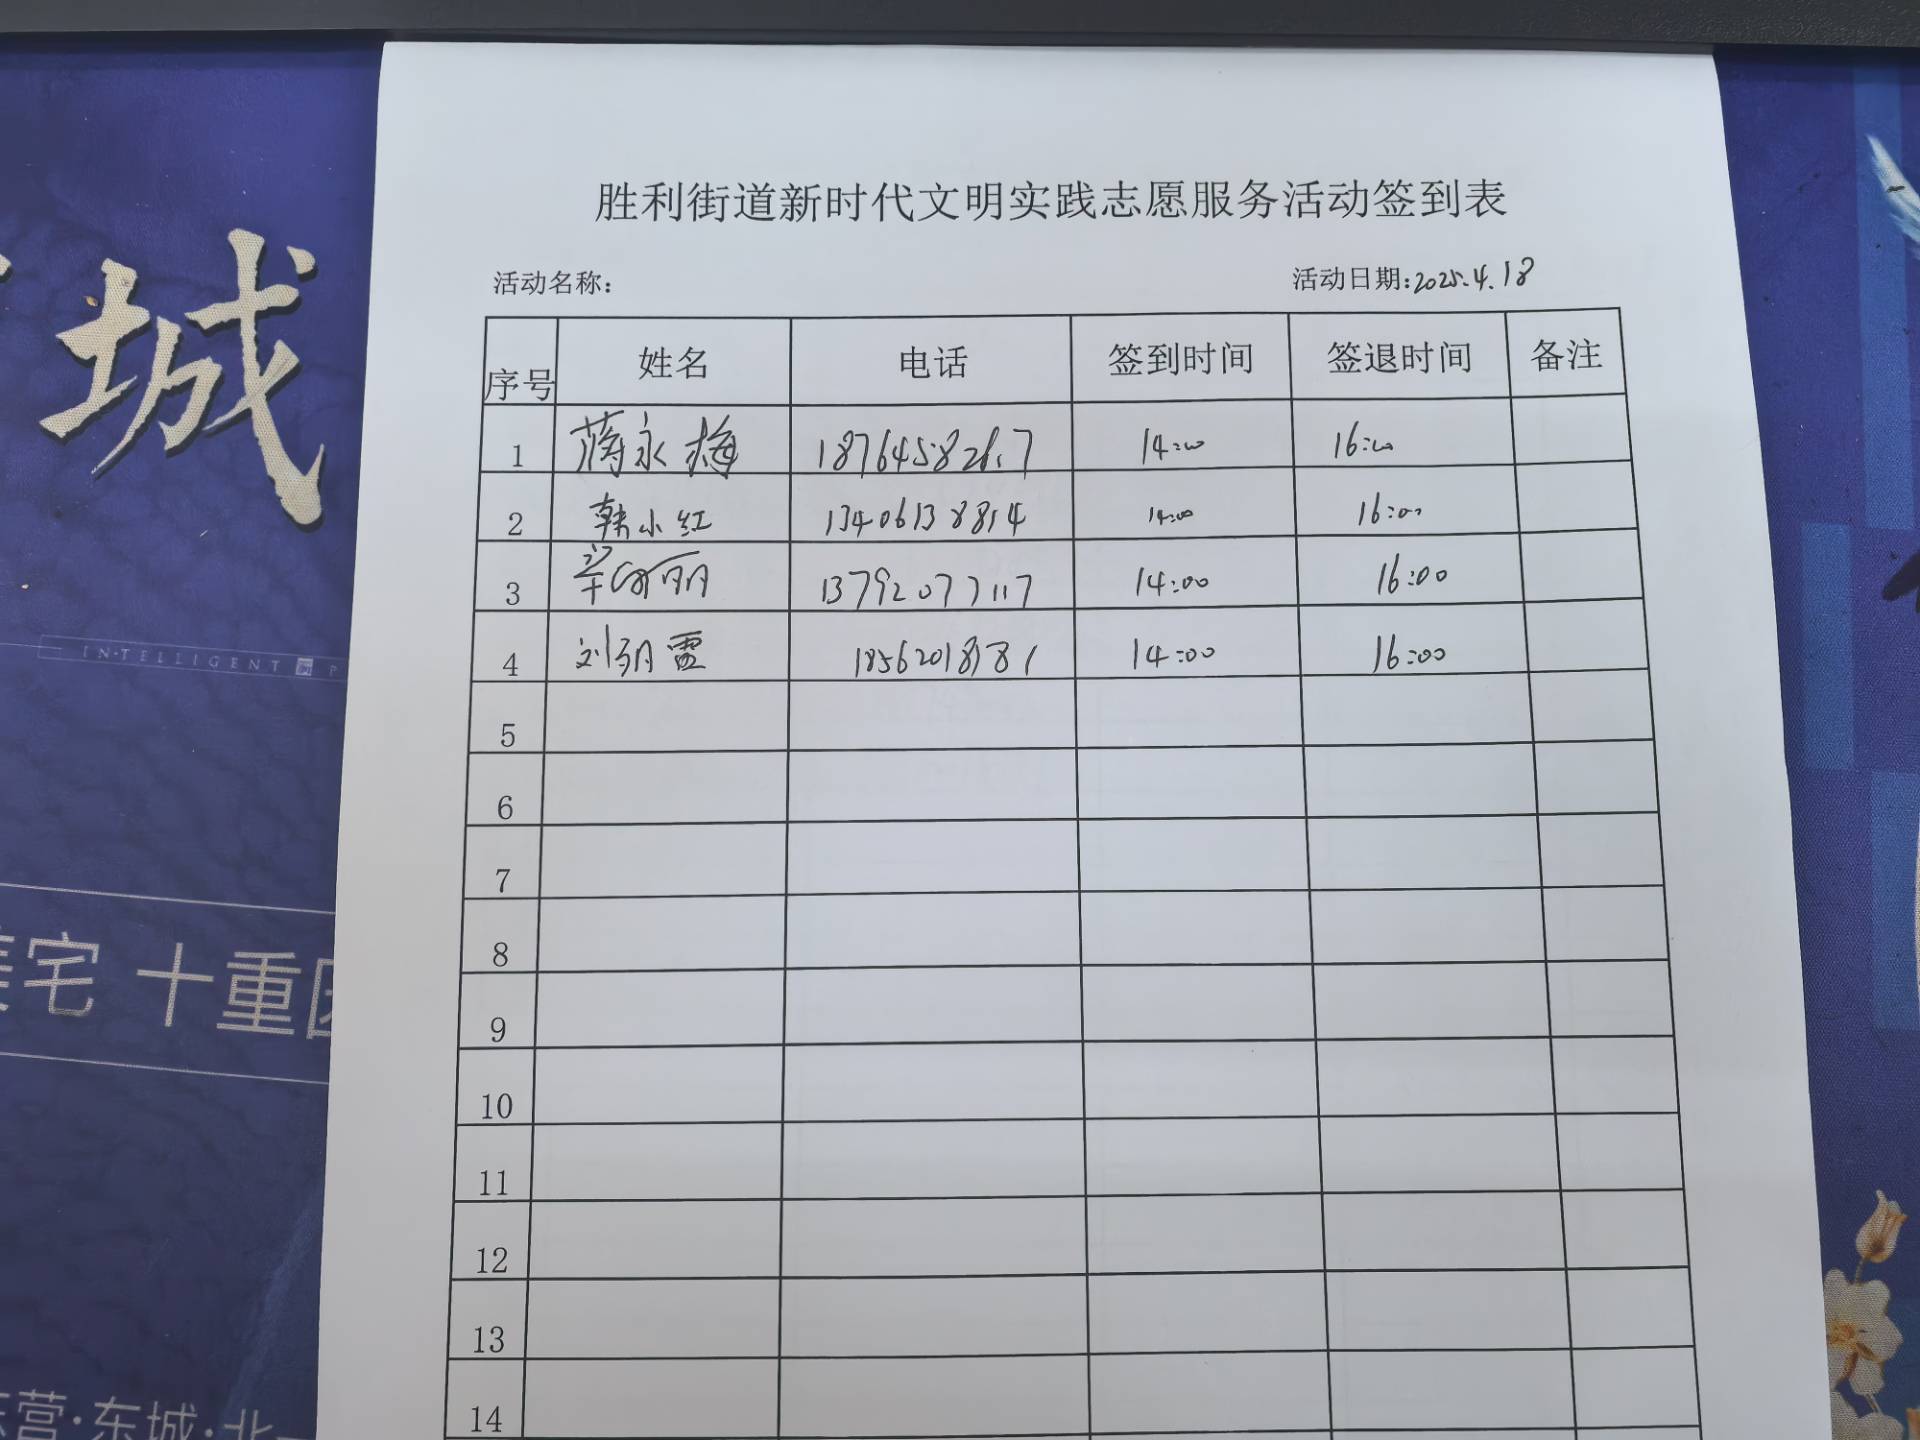 胜利街道新时代文明实践志愿服务活动签到表
活动名称: 活动日期:2025.4.18
序号 姓名 电话 签到时间 签退时间 备注
1 蒋永梅 14:00 16:00
2 韩小红 13406138814 14:00 16:00
3 13792077117 14:00 16:00
4 18562018781 14:00 16:00
5
6
7
8
9
10
11
12
13
14
城
INTELLIGENT
宅 十重
营·东城·北